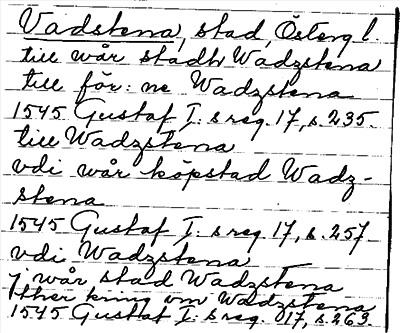 Vadstena, stad, Österg l.
till wår stadh Wadzstena
till för: ne Wadzstena
1545 Gustaf I: s reg. 17, s. 235.
till Wadzstena
vdi wår köpstad Wadz-
stena
1545 Gustaf I: s reg. 17, s. 257
vdi Wadzstena
j wår stad Wadzstena
Ther kring om Wadzstena
1545 Gustaf I: s reg. 17, s. 263